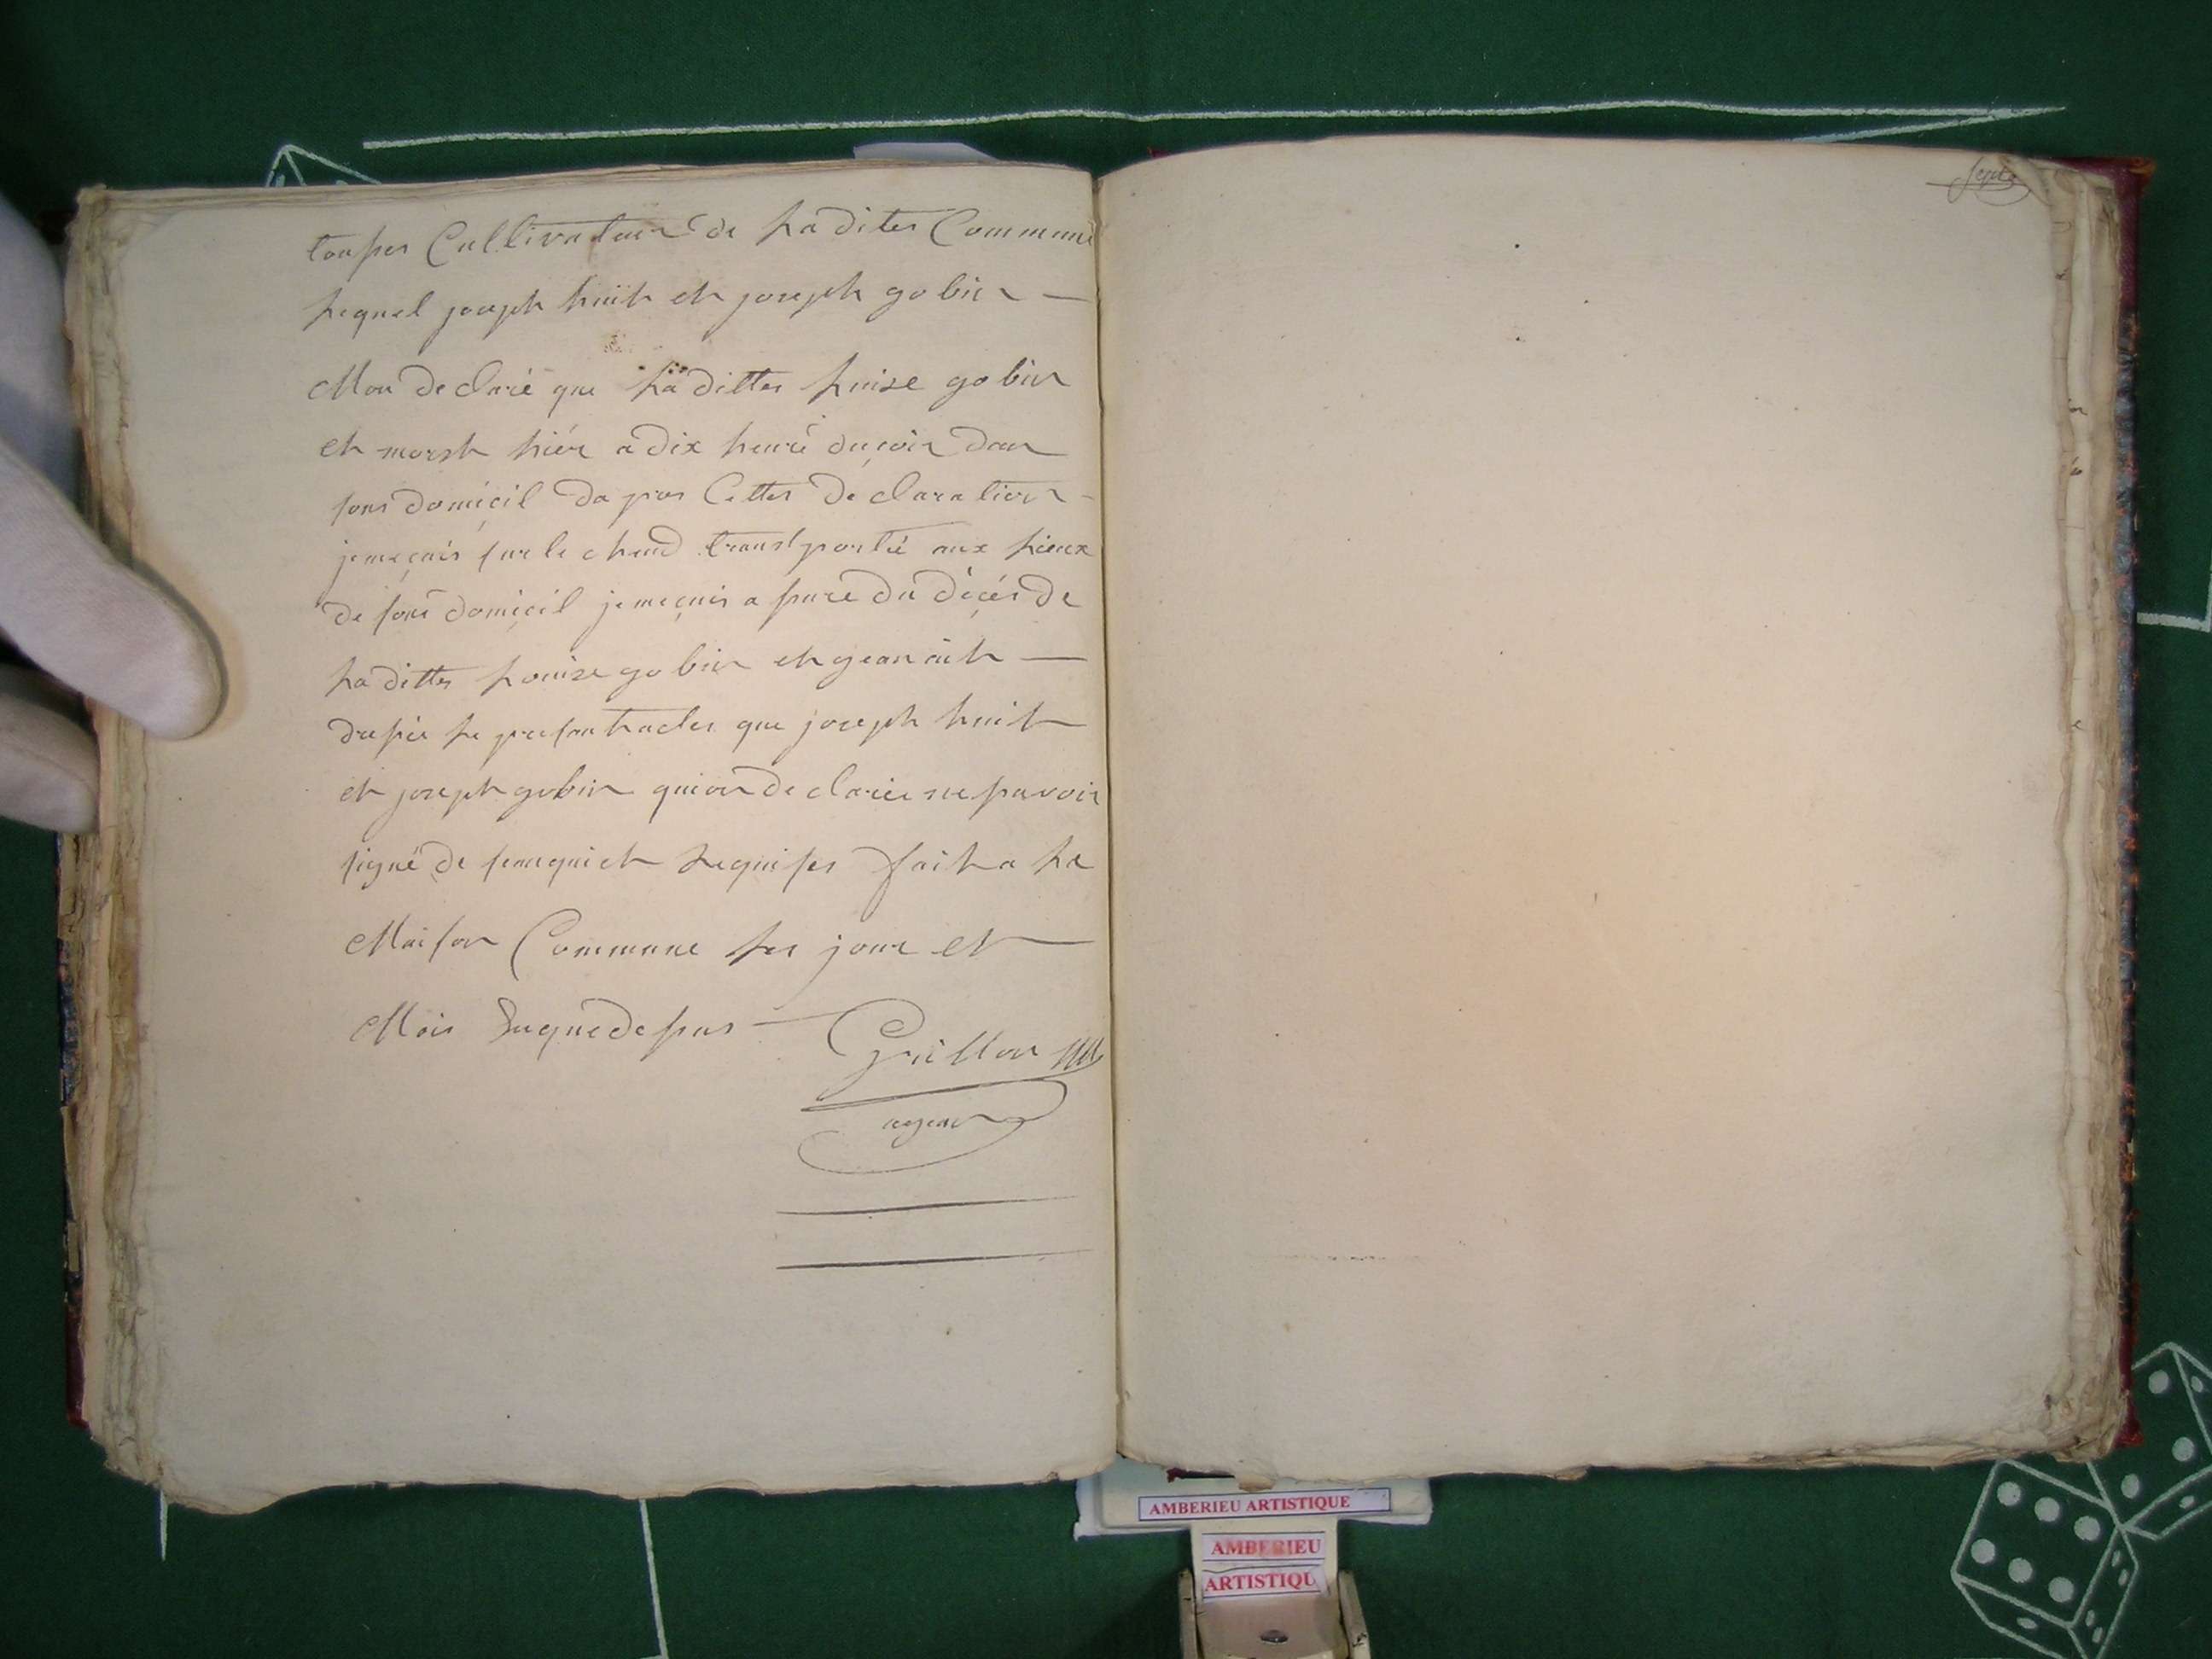 tousses Cultivateur de Laditee Commune
Lequel joseph huit et joseph gobin —
Mon declaré que Ladittes Luise gobin
et morst hiér a dix heuré du çoir dan
sons domiçil da pres Cettes declaration -
je me çuis sur le chand transtporté aux Lieux
de sons domiçil je me çuis a suré du décés de
Laditte Louise gobin et gean ait —
dresée Le presen tacter que joseph huit
et joseph gobin qui on declarée ne savoir
signé de ce Requises fait a La
Maison Commune Les jour et
Mois Suque desus — Grillon
agean
sept
AMBERIEU ARTISTIQUE
AMBERIEU
ARTISTIQU